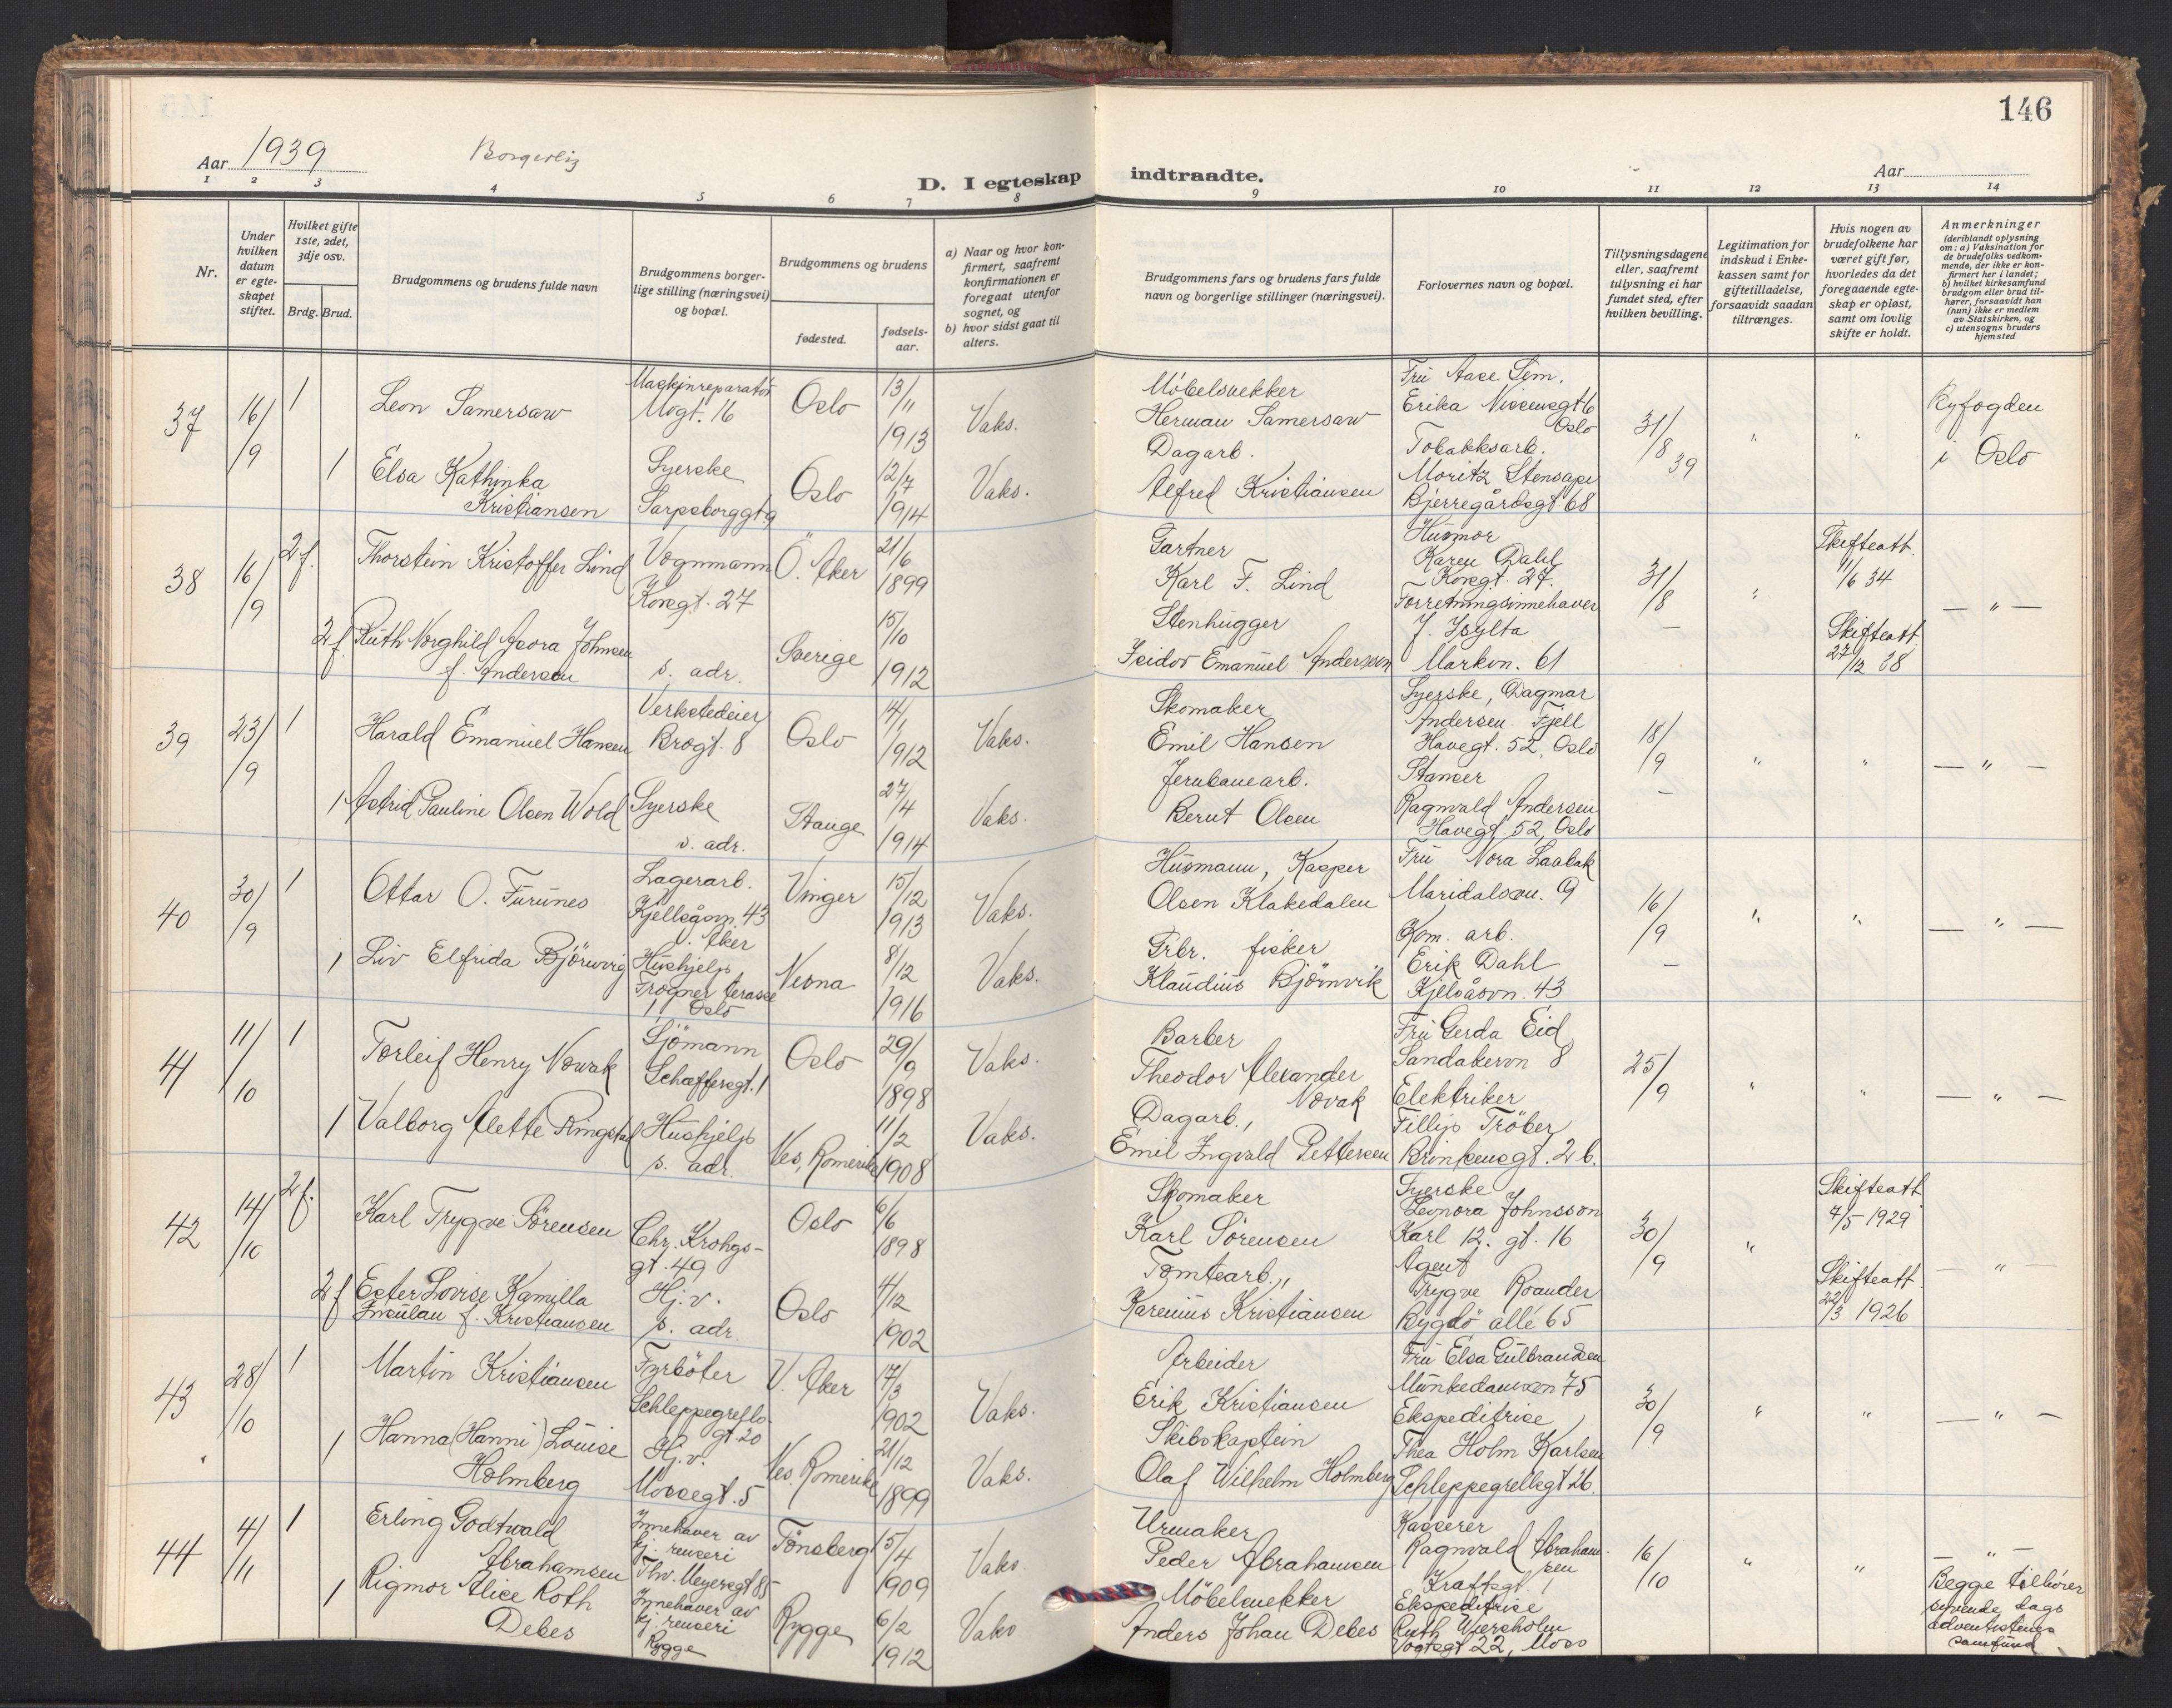 146
Aar 1939
Borgerlig
D. I egteskap indtraadte.
Aar
1 2 3 4 5 6 7 8 9 10 11 12 13 14
Nr.
Under hvilken datum er egteskapet stiftet.
Hvilket gifte 1ste, 2det, 3dje osv.
Brdg. Brud.
Brudgommens og brudens fulde navn
Brudgommens borgerlige stilling (næringsvei) og bopæl.
Brudgommens og brudens
fødested.
fødselsaar.
a) Naar og hvor konfirmert, saafremt konfirmationen er foregaat utenfor sognet, og
b) hvor sidst gaat til alters.
Brudgommens fars og brudens fars fulde navn og borgerlige stillinger (næringsvei).
Forlovernes navn og bopæl.
Tillysningsdagene eller, saafremt tillysning ei har fundet sted, efter hvilken bevilling.
Legitimation for indskud i Enkekassen samt for giftetilladelse, forsaavidt saadan tiltrænges.
Hvis nogen av brudefolkene har været gift før, hvorledes da det foregaaende egteskap er opløst, samt om lovlig skifte er holdt.
Anmerkninger
(deriblandt oplysning om: a) Vaksination for de brudefolks vedkommende, der ikke er konfirmert her i landet; b) hvilket kirkesamfund brudgom eller brud tilhører, forsaavidt han (hun) ikke er medlem av Statskirken, og c) utensogns bruders hjemsted
37 16/9 1 Leon Samersaw
Maskinreparatör
Mogt. 16
Oslo 13/11 1913 Vaks.
Möbelsnekker
Herman Samersaw
Fru Aase Sem.
Erika Nissensgt 6
Oslo
31/8 39 " "
Byfogden
i Oslo
1 Elsa Kathinka
Kristiansen
Syerske
Sarpsborggt 9
Oslo 12/7 1914 Vaks.
Dagarb.
Alfred Kristiansen
Tobakksarb.
Moritz
Bjerregårdsgt. 68
38 16/9 2 f. Thorstein Kristoffer Lind
Vognmann
Korsgt. 27
Ö. Aker 21/6 1899
Gartner
Karl F. Lind
Husmor
Karen Dahl
Korsgt. 27.
31/8 "
Skifteatt.
11/6 34
— " —
2 f. Ruth Asora Johnsen
f. Andersen
s. adr.
Sverige 15/10 1912
Stenhugger
Isidor Emanuel Andersson
Forretningsinnehaver
J.
Markvn. 61
—
Skifteatt
27/12 38
39 23/9 1 Harald Emanuel Hansen
Verkstedeier
Brogt. 8
Oslo 14/1 1912 Vaks.
Skomaker
Emil Hansen
Syerske, Dagmar
Andersen Fjell
Havegt. 52, Oslo
18/9 " " — " —
1 Astrid Pauline Olsen Wold
Syerske
s. adr.
Stange 27/4 1914 Vaks.
Jernbanearb.
Bernt Olsen
Stanser
Ragnvald Andersen
Havegt. 52, Oslo
—
40 30/9 1 Ottar O. Furunes
Lagerarb.
Kjellsåsvn. 43
Aker
Vinger 15/12 1913 Vaks.
Husmann, Kasper
Olsen Klakedalen
Fru Nora Laabak
Maridalsvn. 9
16/9 " " — " —
1 Liv Elfrida Björnvig
Hushjelp
Frogner terasse
1 Oslo
Nesna 8/12 1916 Vaks.
Grbr. fisker
Klaudius Björnvik
Kom. arb.
Erik Dahl
Kjelsåsvn. 43
—
41 11/10 1 Torleif Henry Nowak
Sjömann
Schæffersgt. 1
Oslo 29/9 1898 Vaks.
Barber
Theodor Alexander
Novak
Fru Gerda Eid
Sandakervn 8
25/9 " " — " —
1 Valborg Alette Ringstad
Hushjelp
s. adr.
Nes, Romerike 11/2 1908 Vaks.
Dagarb.,
Emil Ingvald Pettersen
Elektriker
Fillip Tröber
Brinkensgt. 2 b.
42 14/10 2 f. Karl Trygve Sörensen
Chr. Krohgs-
gt. 49
Oslo 6/6 1898
Skomaker
Karl Sörensen
Syerske
Leonora Johnsson
Karl 12. gt. 16
30/9 "
Skifteatt
4/5 1929
— " —
2 f Ester Lovise Kamilla
f. Kristiansen
Hj. v.
s. adr.
Oslo 4/12 1902
Tomtearb.,
Karenius Kristiansen
Agent
Trygve Roander
Bygdö allé 65
Skifteatt.
22/3 1926
43 28/10 1 Martin Kristiansen
Fyrböter
Schleppegrells-
gt. 20
V. Aker 17/3 1902 Vaks.
Arbeider
Erik Kristiansen
Fru Elsa Gulbrandsen
Munkedamsvn 75
30/9 " " — " —
1 Hanna (Hanni) Louise
Holmberg
Hj. v.
Mossegt. 5
Nes. Romerike 21/12 1899 Vaks.
Skibskaptein
Olaf Wilhelm Holmberg
Ekspeditrise
Thea Holm Karlsen
Schleppegrellsgt 26.
44 4/11 1 Erling Godtwald
Abrahamsen
Innehaver av
kj. renseri
Thv. Meyersgt 85
Tönsberg 15/4 1909 Vaks.
Urmaker
Peder Abrahamsen
Kasserer
Ragnvald Abraham-
sen
Kraftsgt. 1
16/10 " " — " —
1 Rigmor Alice Roth
Debes
Innehaver av
kj. renseri
Rygge
Rygge 6/2 1912 Vaks
Möbelsnekker
Anders Johan Debes
Ekspeditrise
Ruth Wiersholm
Vogtsgt 22, Moss
Begge tilhörer
syvende dags
adventistenes
samfund